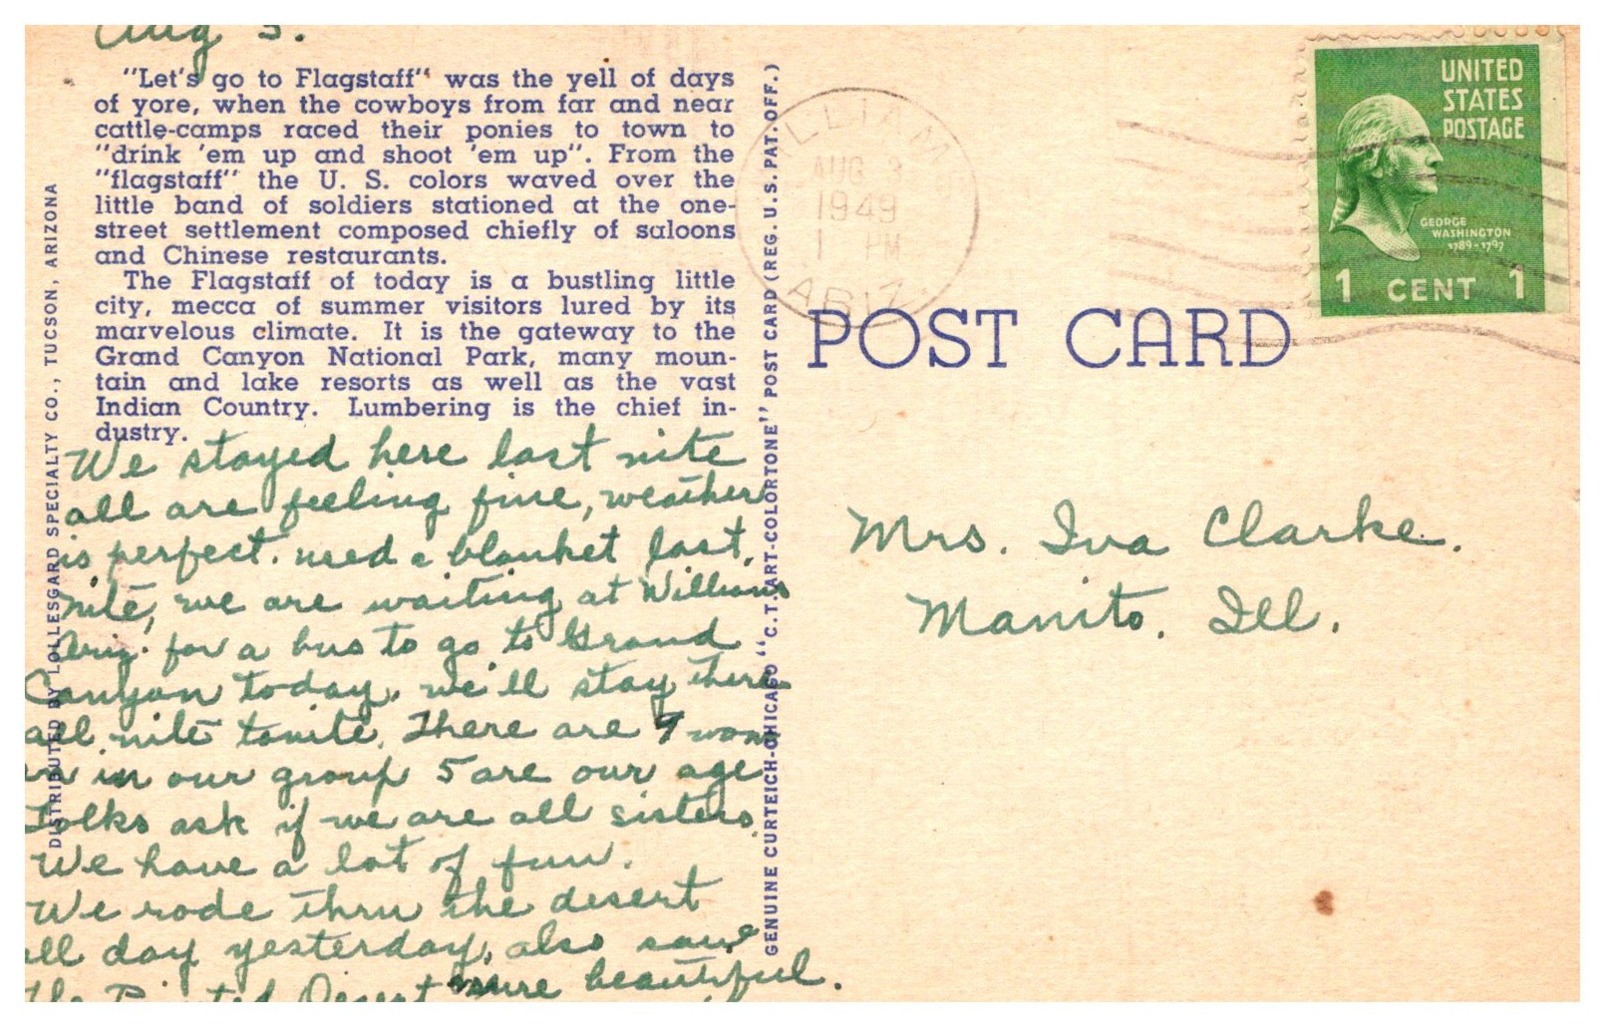 Aug 3.
"Let's go to Flagstaff" was the yell of days
of yore, when the cowboys from far and near
cattle-camps raced their ponies to town to
"drink 'em up and shoot 'em up". From the
"flagstaff" the U. S. colors waved over the
little band of soldiers stationed at the one-
street settlement composed chiefly of saloons
and Chinese restaurants.
The Flagstaff of today is a bustling little
city, mecca of summer visitors lured by its
marvelous climate. It is the gateway to the
Grand Canyon National Park, many moun-
tain and lake resorts as well as the vast
Indian Country. Lumbering is the chief in-
dustry.
We stayed here last nite
all are feeling fine, weather
is perfect. used a blanket last
nite, we are waiting at Williams
Ariz. for a bus to go to Grand
Canyon today, we'll stay there
all nite tonite. There are 9 wom
en in our group 5 are our age
Folks ask if we are all sisters.
We have a lot of fun.
We rode thru the desert
all day yesterday, also saw
the Painted Desert sure beautiful.
DISTRIBUTED BY LOLLESGARD SPECIALTY CO., TUCSON, ARIZONA
GENUINE CURTEICH-CHICAGO "C.T. ART-COLORTONE" POST CARD (REG. U.S. PAT. OFF.)
WILLIAMS
AUG 3
1949
1 PM
ARIZ.
UNITED
STATES
POSTAGE
GEORGE
WASHINGTON
1789-1797
1 CENT 1
POST CARD
Mrs. Iva Clarke.
Manito, Ill.